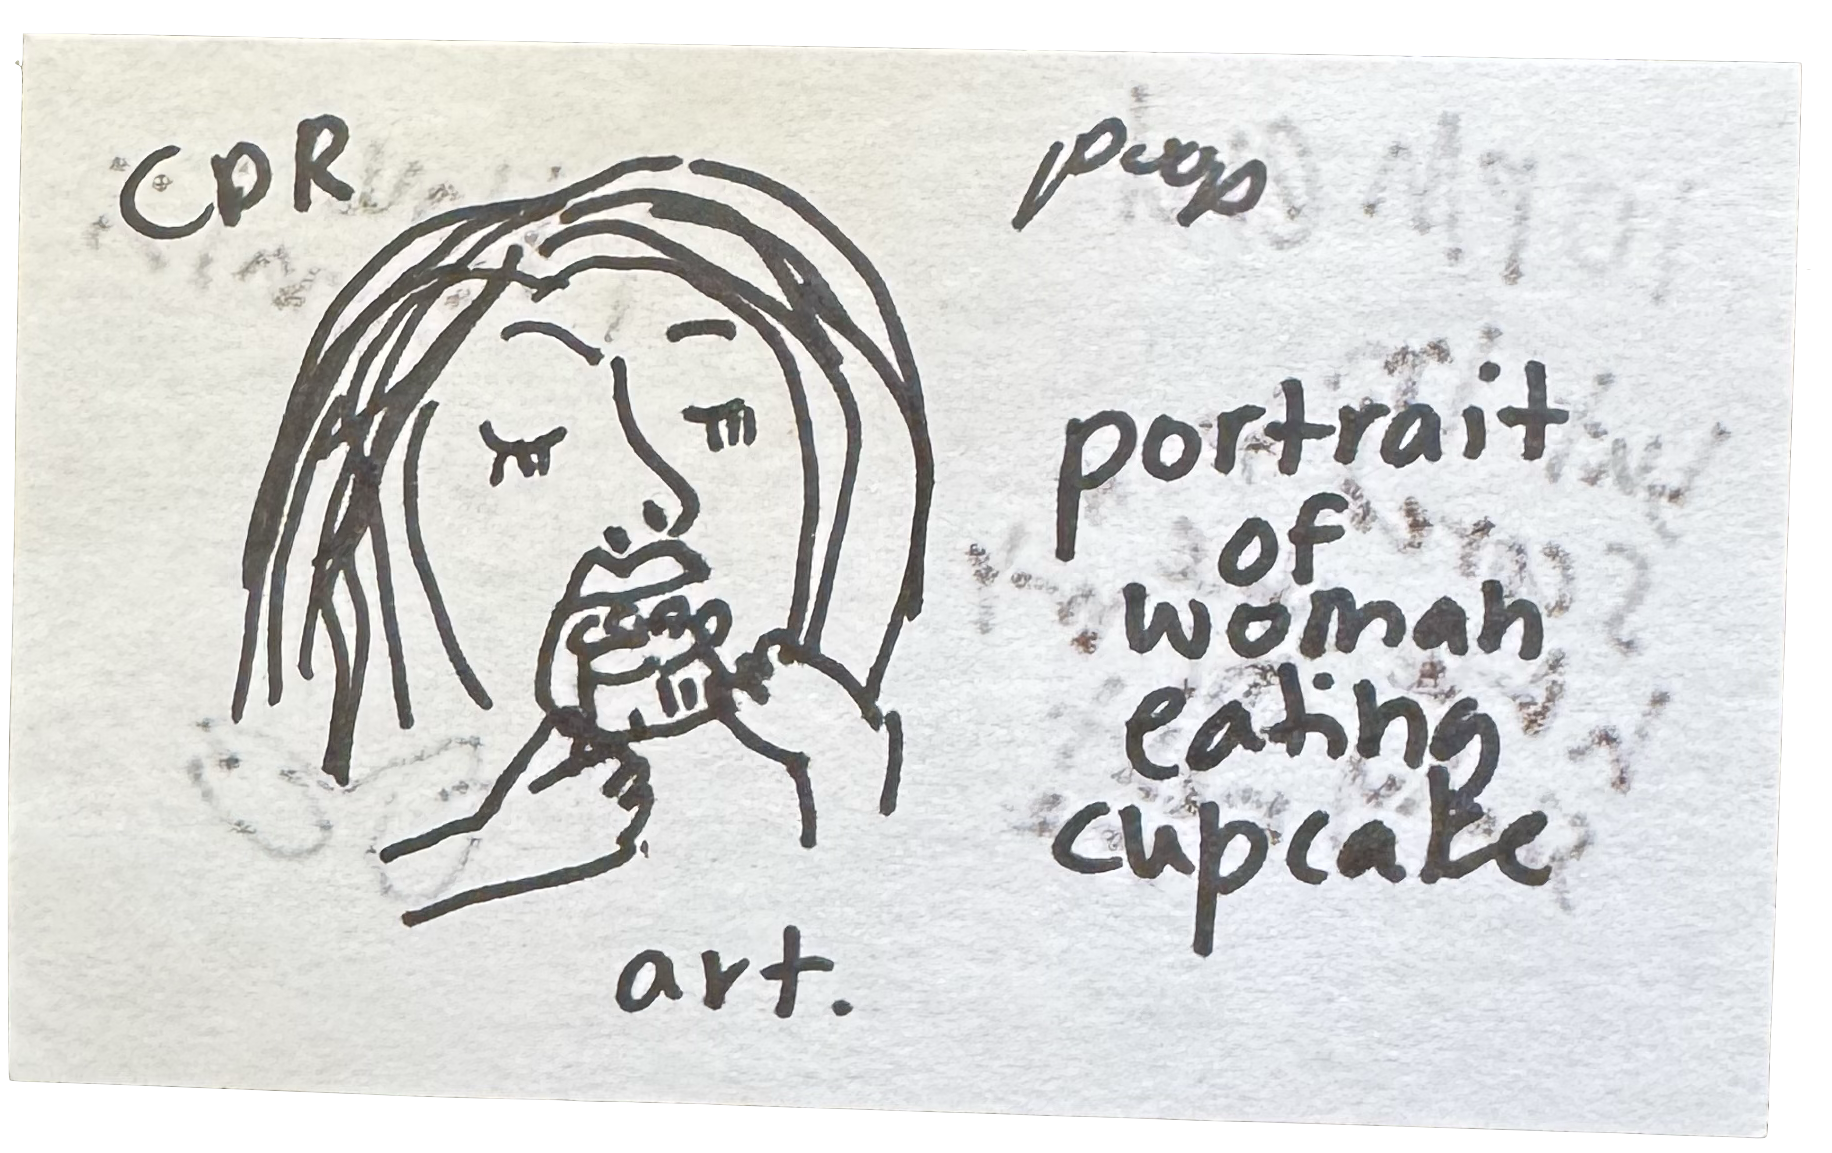 CDR
poop
portrait
of
woman
eating
cupcake
art.